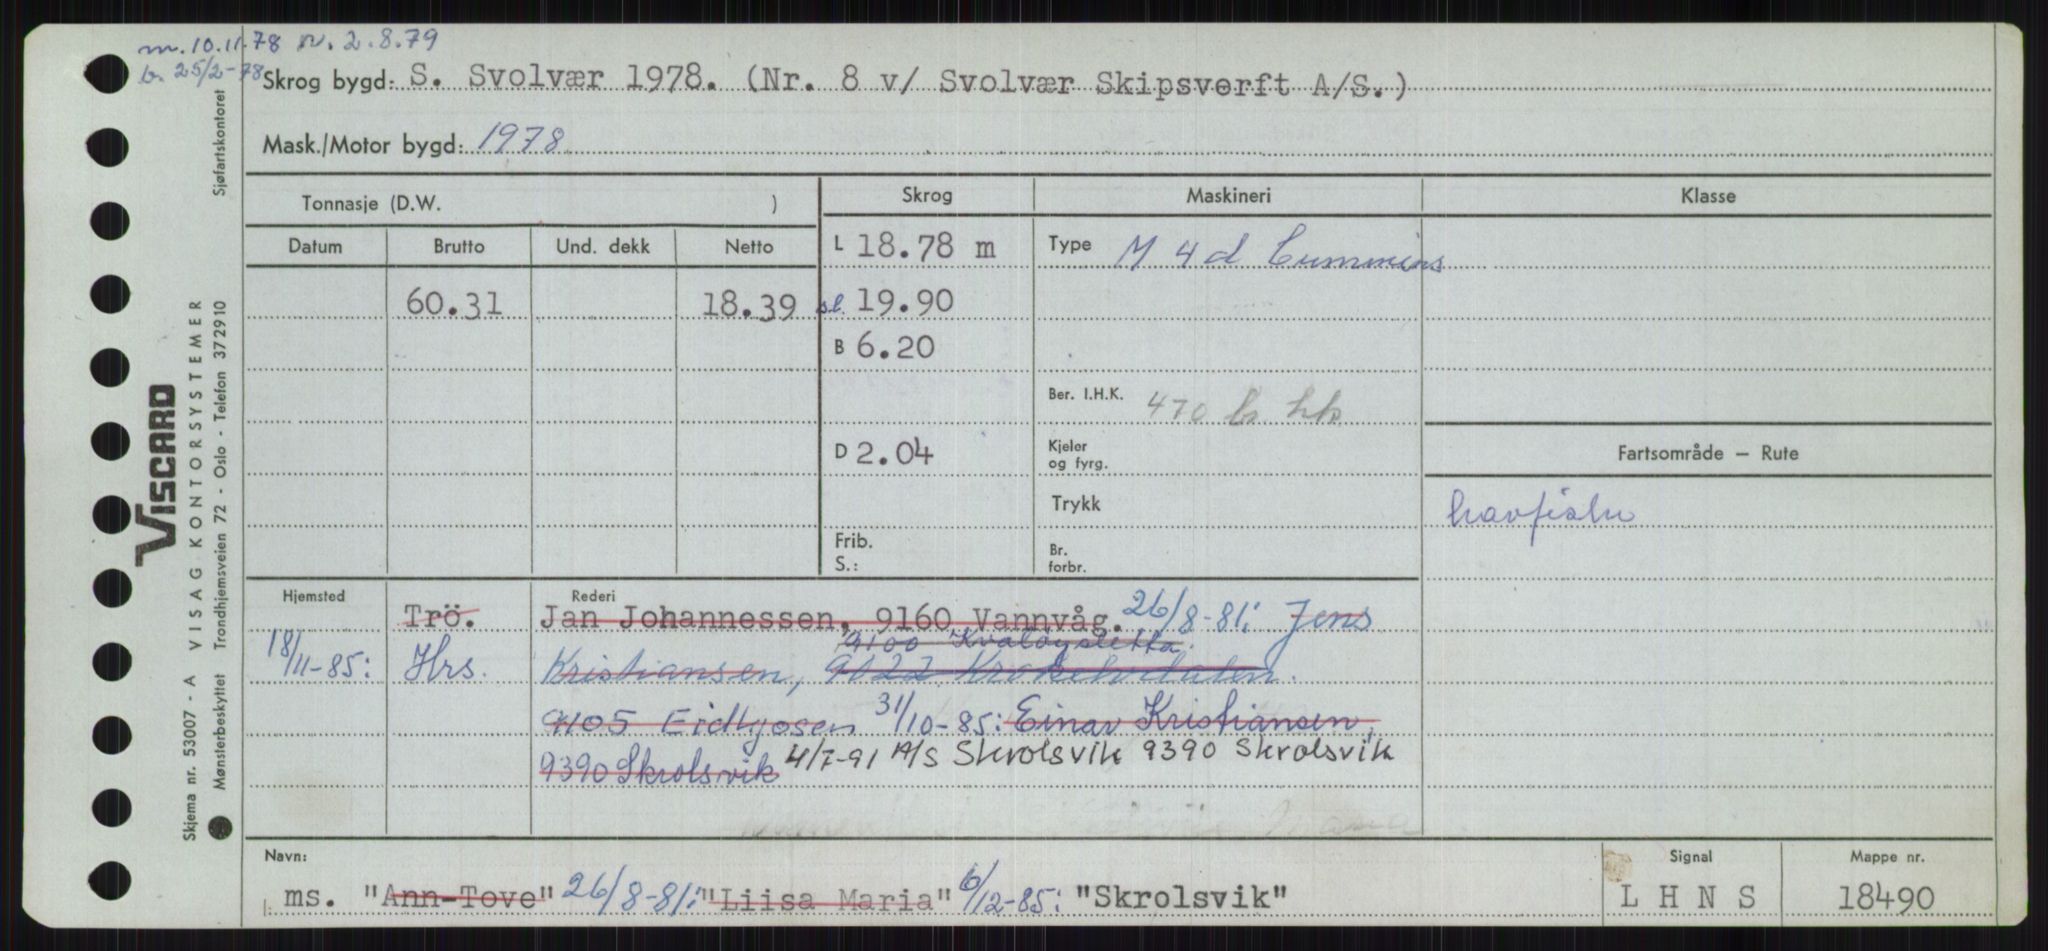 m. 10.11.78 n. 2.8.79
b. 25/2-78
Skrog bygd: S. Svolvær 1978. (Nr. 8 v/ Svolvær Skipsverft A/S.)
Mask./Motor bygd: 1978
Tonnasje (D.W. )
Skrog
Maskineri
Klasse
Datum
Brutto
Und. dekk
Netto
L 18.78 m
Type M 4 d Cummins
60.31
18.39
s.l. 19.90
B 6.20
Ber. I.H.K. 470 b. hk
D 2.04
Kjeler
og fyrg.
Fartsområde – Rute
Trykk
havfiske
Frib.
S.:
Br.
forbr.
Hjemsted
Rederi
Trö.
Jan Johannessen, 9160 Vannvåg. 26/8-81: Jens
9100 Kvaløysletta.
18/11-85: Hrs.
Kristiansen, 9122 Krokelvdalen.
9105 Eidkjosen 31/10-85: Einar Kristiansen,
9390 Skrolsvik 4/7-91 A/S Skrolsvik 9390 Skrolsvik
Maria
Navn:
ms. "Ann-Tove" 26/8-81: "Liisa Maria" 6/12-85: "Skrolsvik"
Signal
L H N S
Mappe nr.
18490
VISCARD
Skjema nr. 53007 - A VISAG KONTORSYSTEMER
Mønsterbeskyttet Trondhjemsveien 72 - Oslo - Telefon 372910 Sjøfartskontoret